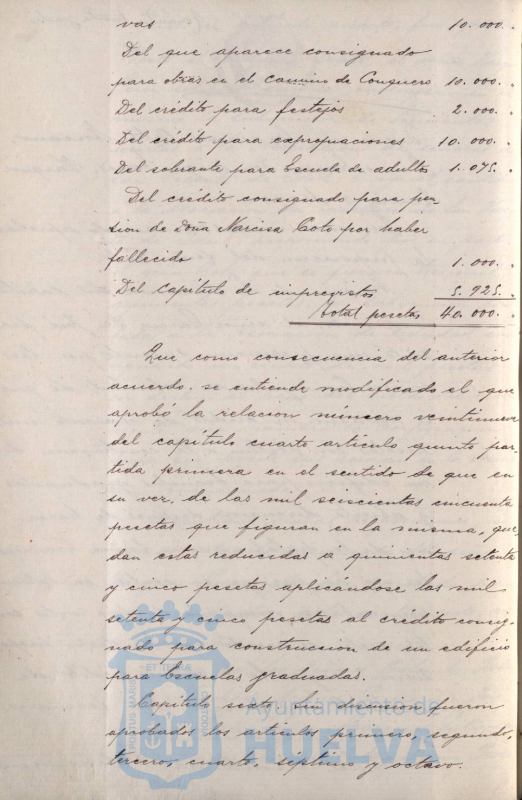 vas 10.000.
Del que aparece consignado
para obras en el camino de Conquero 10.000.
Del crédito para festejos 2.000.
Del crédito para expropiaciones 10.000.
Del sobrante para Escuela de adultos 1.075.
Del crédito consignado para pen-
sion de Doña Narcisa Coto por haber
fallecido 1.000.
Del Capítulo de imprevistos 5.925.
Total pesetas 40.000.
Que como consecuencia del anterior
acuerdo. se entiende modificado el que
aprobó la relacion número veintinueve
del capítulo cuarto articulo quinto par-
tida primera en el sentido de que en
su vez, de las mil seiscientas cincuenta
pesetas que figuran en la misma, que-
dan estas reducidas á quinientas setenta
y cinco pesetas aplicándose las mil
setenta y cinco pesetas al crédito consig-
nado para construccion de un edificio
para Escuelas graduadas.
Capítulo sexto. Sin discusion fueron
aprobados los articulos primero, segundo,
tercero, cuarto, septimo y octavo.
Ayuntamiento de
HUELVA
PORTUS MARIS
ET TERRÆ
CUSTODIA